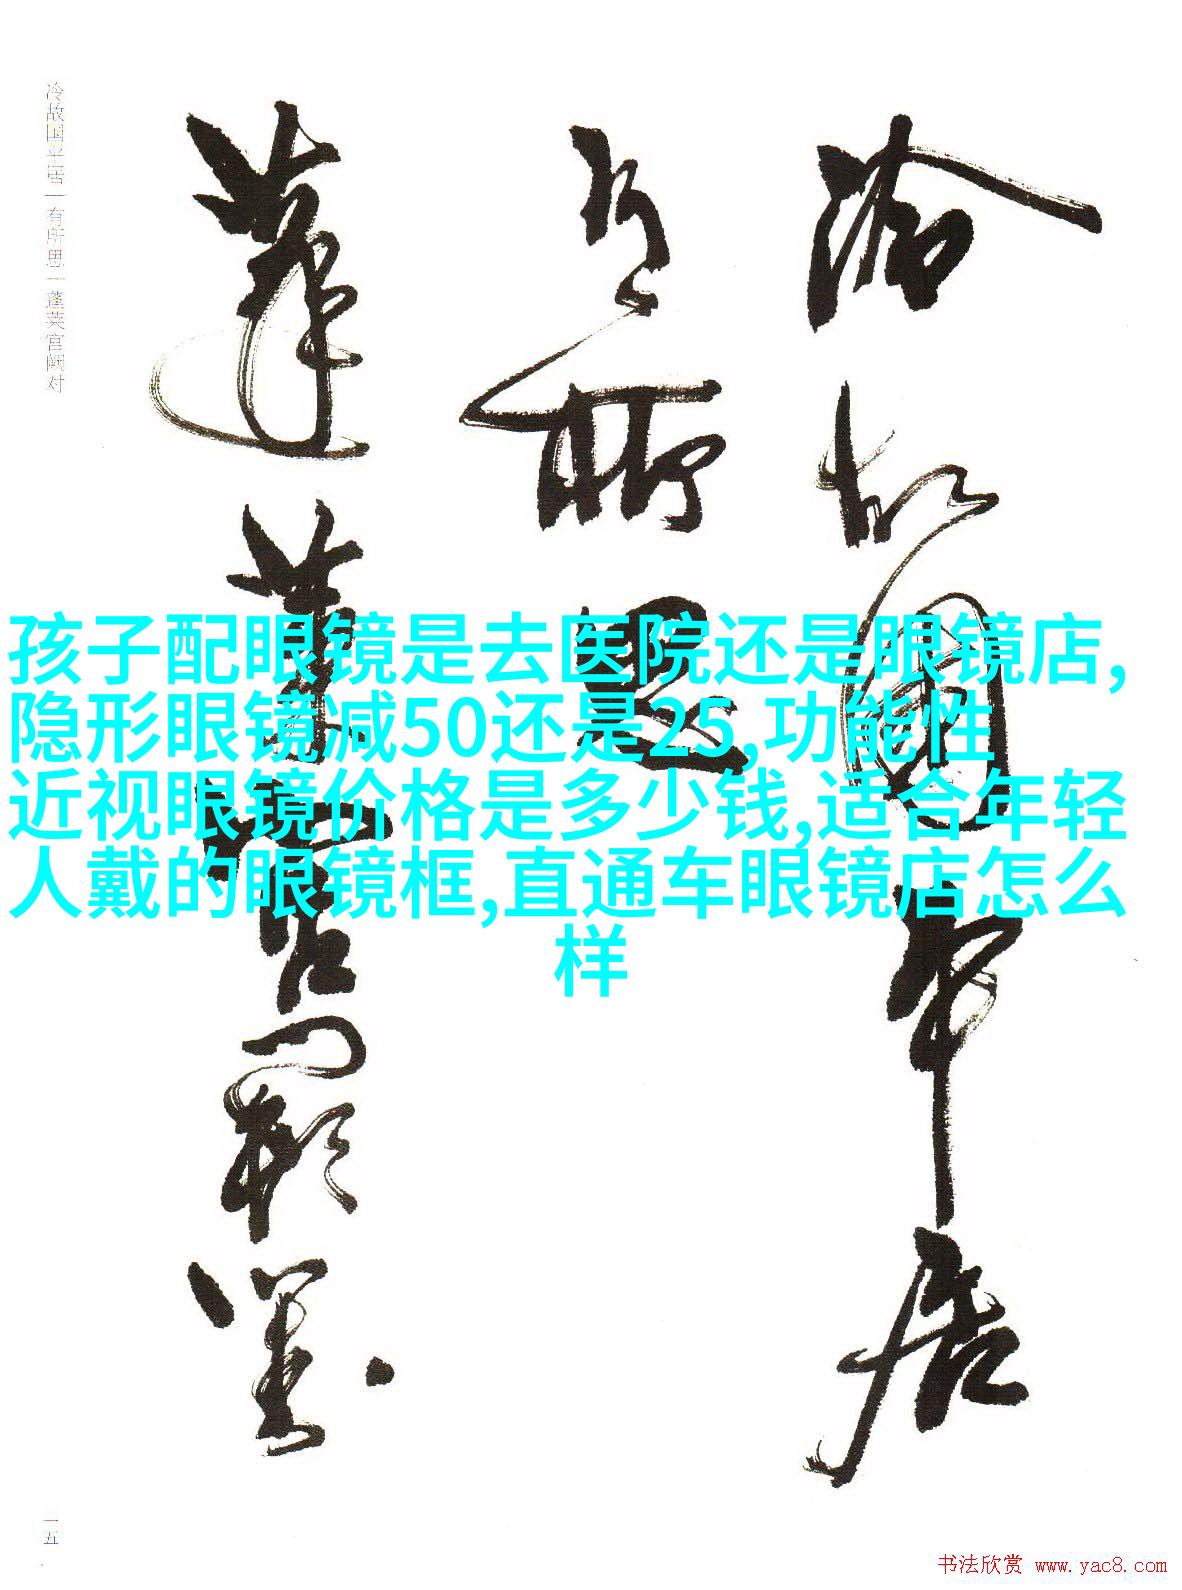 冷故国平居
有所思
蓬莱宫阙对
冷故国平居—有所思—蓬莱宫阙对
孩子配眼镜是去医院还是眼镜店,
隐形眼镜减50还是25,功能性
近视眼镜价格是多少钱,适合年轻
人戴的眼镜框,直通车眼镜店怎么
样
一五
书法欣赏 www.yac8.com